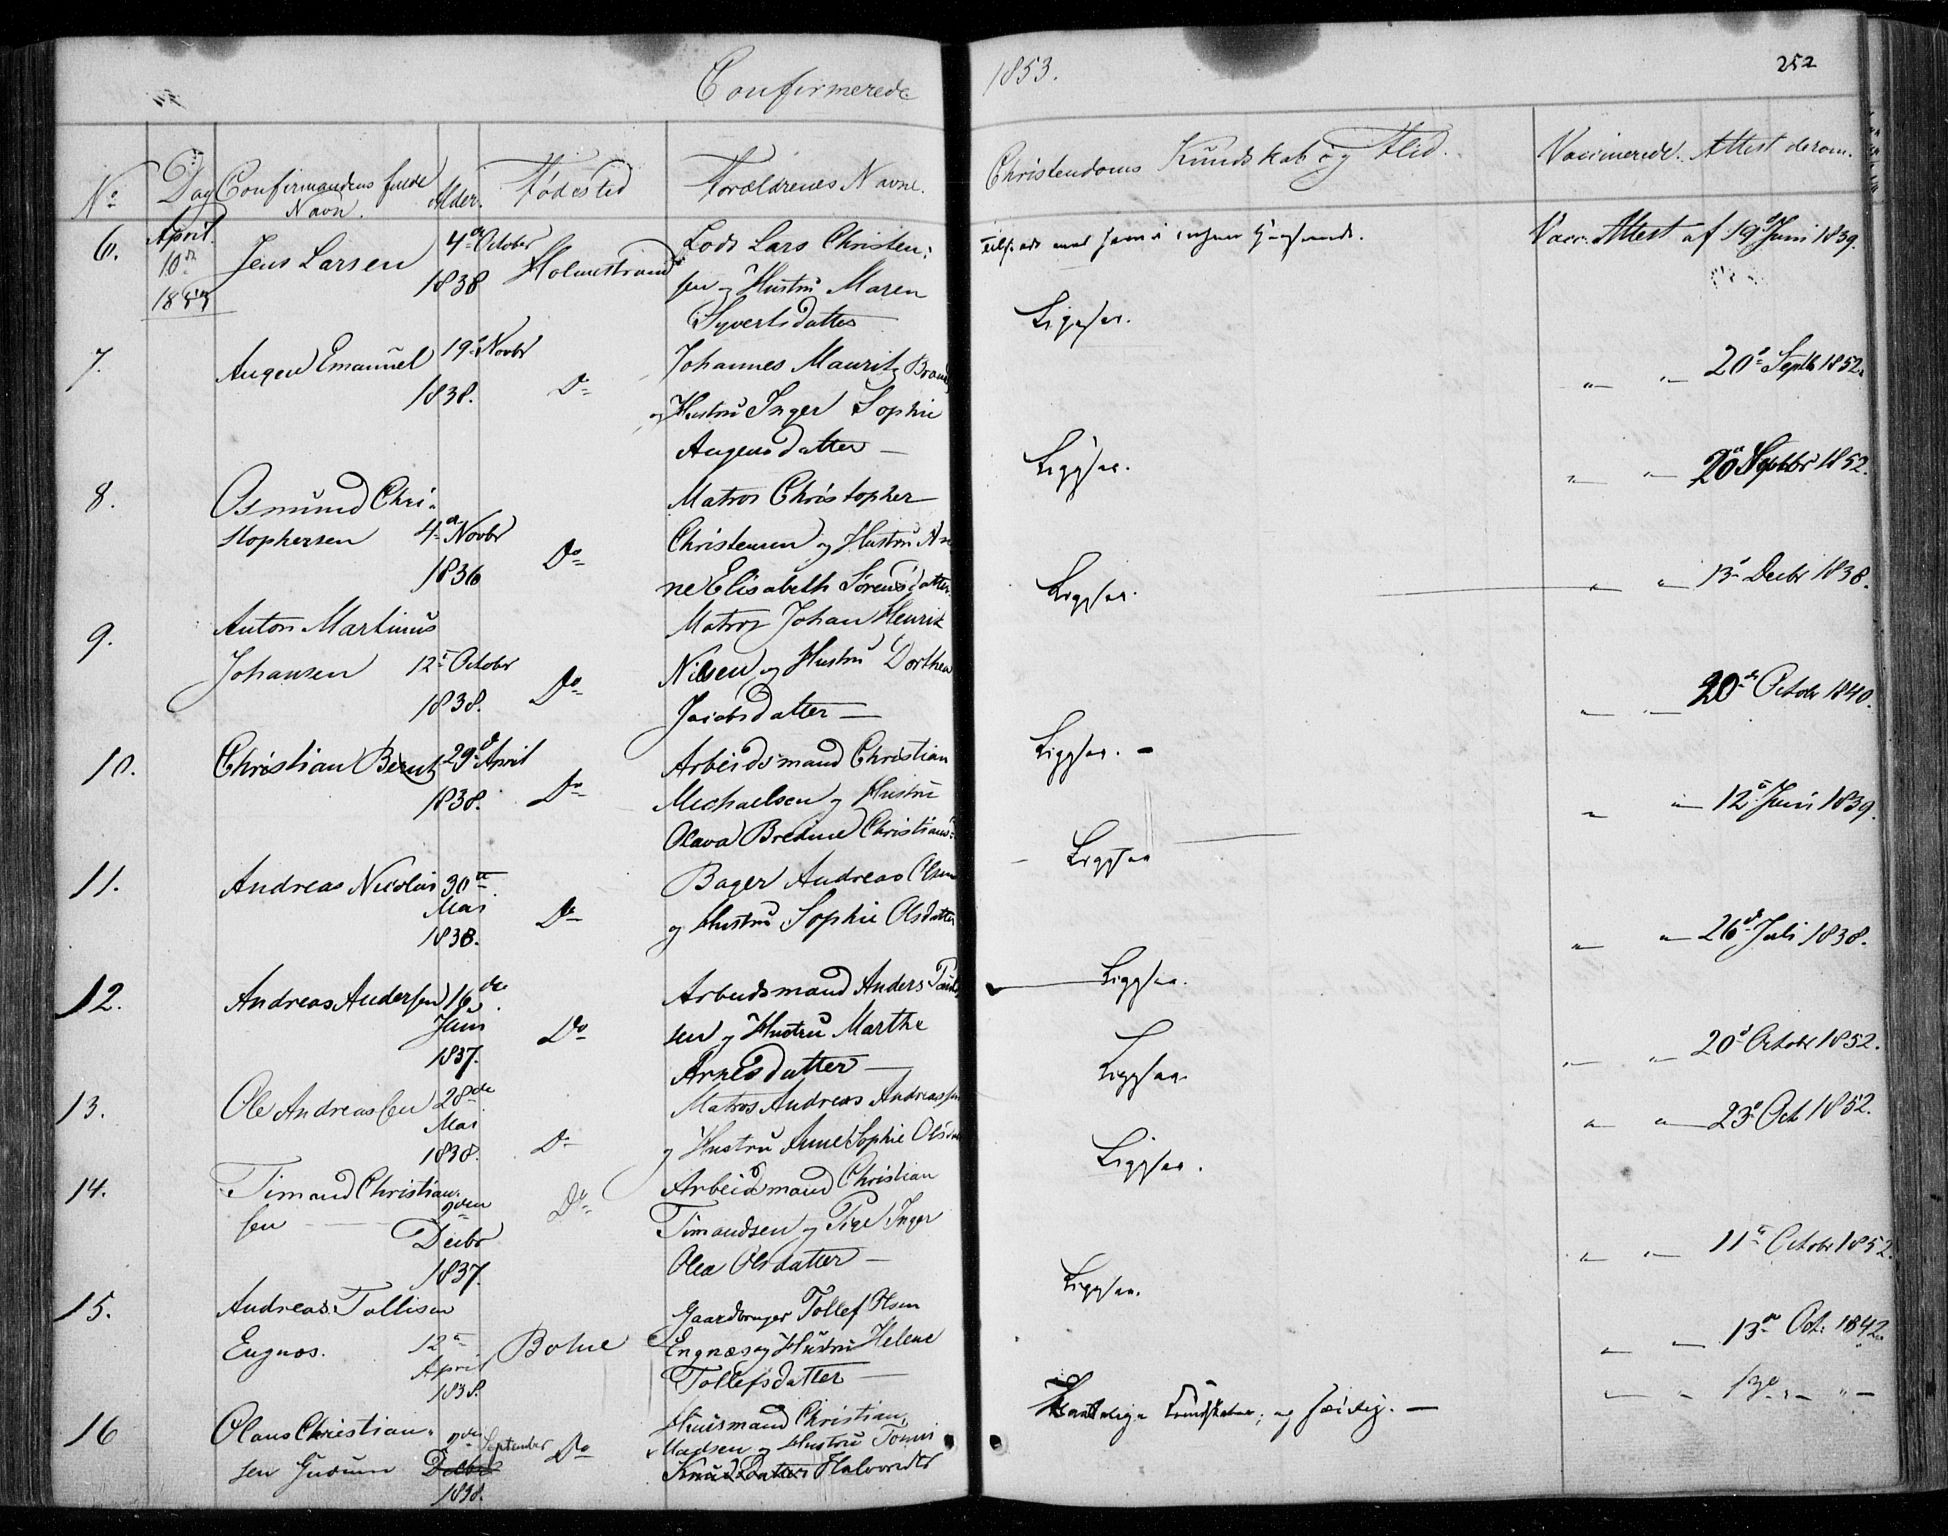 Confirmerede 1853.
252
No Dag Confirmandens fulde Navn. Alder. Fødested Forældrenes Navne. Christendoms Kundskab og Flid. Vaccinerede. Attest derom.
6. April 10de 1853 Jens Larsen 4de October 1838 Holmestrand
Lods Lars Christen-
sen og Hustru Maren
Syvertsdatter
Vacc. Attest af 19de Juni 1839.
7. Augen Emanuel 19de Novbr 1838. Do
Johannes Mauritz
og Hustru Inger Sophie
Augensdatter —
Ligesaa.
" " 20de Septb 1852.
8. Osmund Chri-
stophersen 4de Novbr 1836 Do
Matros Christopher
Christensen og Hustru An
ne Elisabeth Sørensdatter
Ligesaa.
" " 20de Septbr 1852.
9. Anton Martinus
Johansen 12te Octobr 1838. Do
Matros Johan Henrik
Nilsen og Hustru Dorthea
Jacobsdatter —
Ligesaa.
" " 13de Decbr 1838.
10. Christian Bernt 29de April 1838. Do
Arbeidsmand Christian
Michaelsen og Hustru
Olava Christians
Ligesaa. —
" " 20de Octobr 1840.
11. Andreas Nicolai 30te Mai 1838. Do
Bager Andreas Olsen
og Hustru Sophie Olsdatter
Ligesaa
" " 12te Juni 1839.
12. Andreas Andersen 16de Juni 1837. Do
Arbeidsmand Anders
sen og Hustru Marthe
Arnesdatter —
Ligesaa.
" " 26de Juli 1838.
13. Ole Andreassen 28de Mai 1838. Do
Matros Andreas Andreassen
og Hustru Anne Sophie
Ligesaa.
" " 20de Octobr 1852.
14. Timand Christian-
sen 9den Decbr 1837. Do
Arbeidsmand Christian
Timandsen og Pige Inger
Olea Olsdatter —
Ligesaa.
" " 23de Oct 1852.
" " 11te Octobr 1852
15. Andreas Tollisen
Engnæs. 12te April 1838. Botne
Gaardbruger Tollef Olsen
Engnæs og Hustru Helene
Tollefsdatter —
Ligesaa.
" " 13de Oct. 1842.
16 Olaus Christian-
sen 9den September Decbr 1838. Do
Huusmand Christian
Madsen og Hustru
Knudsdatter Halvorsdtr
og —
" " 13de " " —